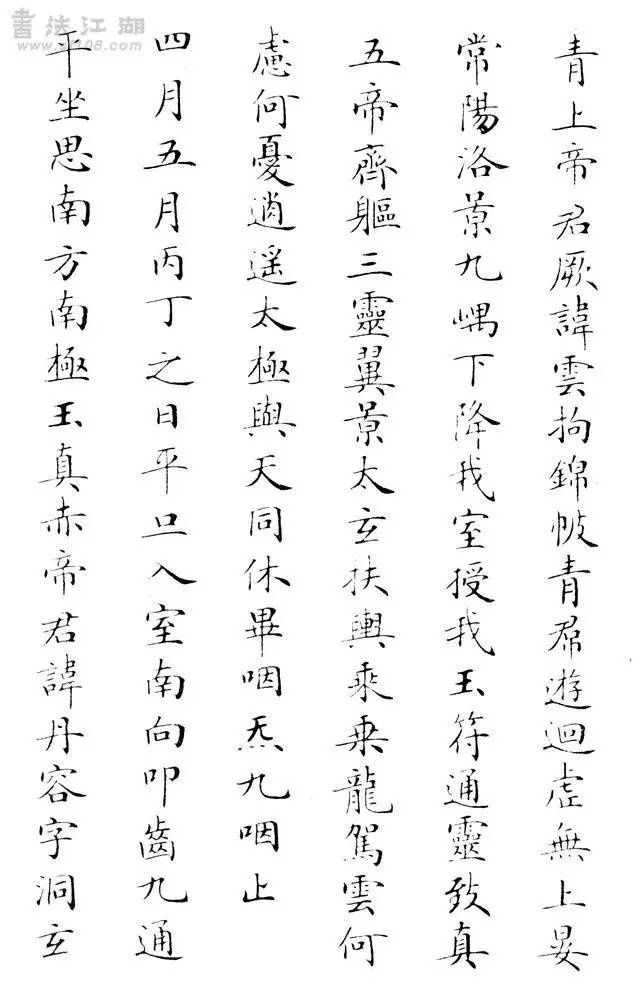 青上帝君厥諱雲拘錦帔青帬遊迴虛無上晏
常陽洛景九嵎下降我室授我玉符通靈致真
五帝齊軀三靈翼景太玄扶輿乘乗龍駕雲何
慮何憂逍遥太極與天同休畢咽炁九咽止
四月五月丙丁之日平旦入室南向叩齒九通
平坐思南方南極玉真赤帝君諱丹容字洞玄
書法江湖